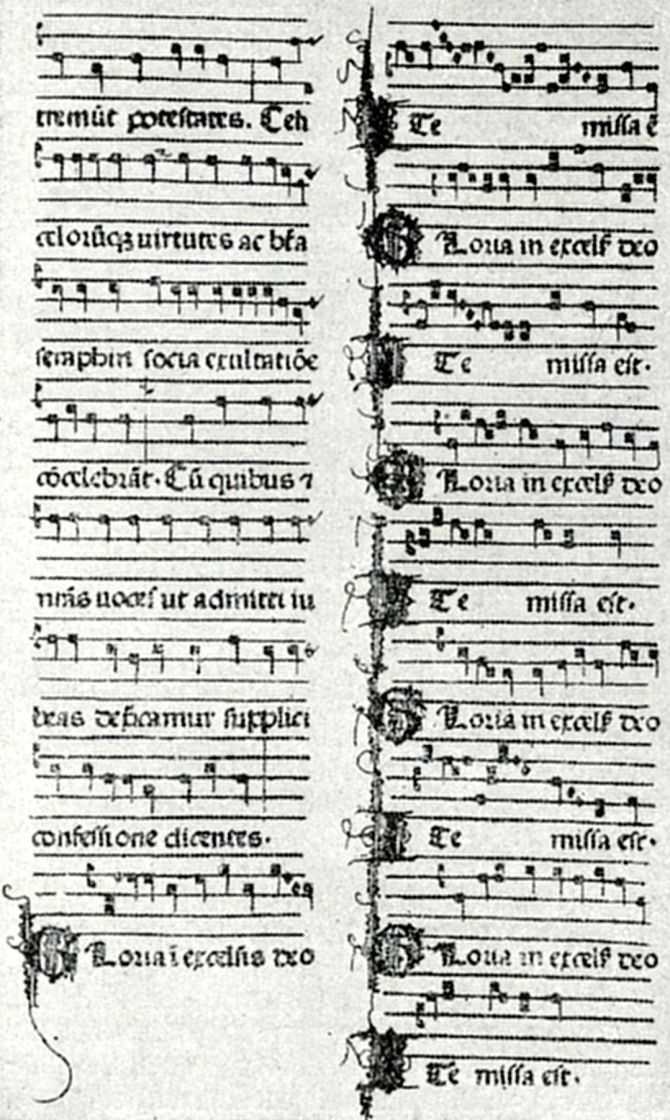 tremūt potestates. Celi
celorūqȝ uirtutes ac bt̄a
seraphin socia exultatiōe
cōcelebrāt. Cū quibus ⁊
nr̄as uoces ut admitti iu
beas dep̄camur supplici
confessione dicentes.
Gloria ī excelsis deo
Ite missa ē
Gloria in excelſ deo
Ite missa est.
Gloria in excelſ deo
Ite missa est.
Gloria in excelſ deo
Ite missa est.
Gloria in excelſ deo
Ite missa est.